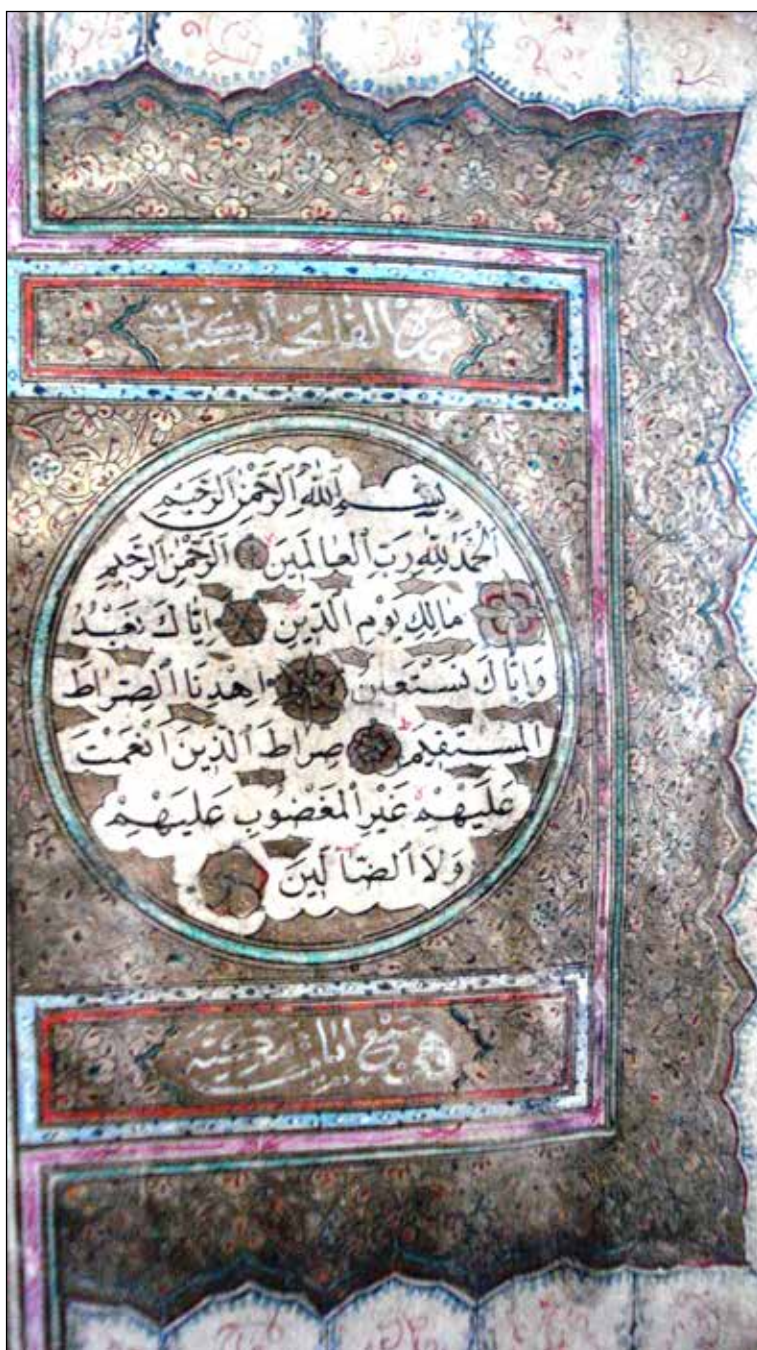 سورة الفاتحة الكتاب
بِسْمِ اللّٰهِ الرَّحْمٰنِ الرَّحِيمِ
اَلْحَمْدُ لِلّٰهِ رَبِّ الْعَالَمِينَ الرَّحْمٰنِ الرَّحِيمِ
مَالِكِ يَوْمِ الدِّينِ اِيَّاكَ نَعْبُدُ
وَاِيَّاكَ نَسْتَعِينُ اِهْدِنَا الصِّرَاطَ
الْمُسْتَقِيمَ صِرَاطَ الَّذِينَ اَنْعَمْتَ
عَلَيْهِمْ غَيْرِ الْمَغْضُوبِ عَلَيْهِمْ
وَلَا الضَّالِّينَ